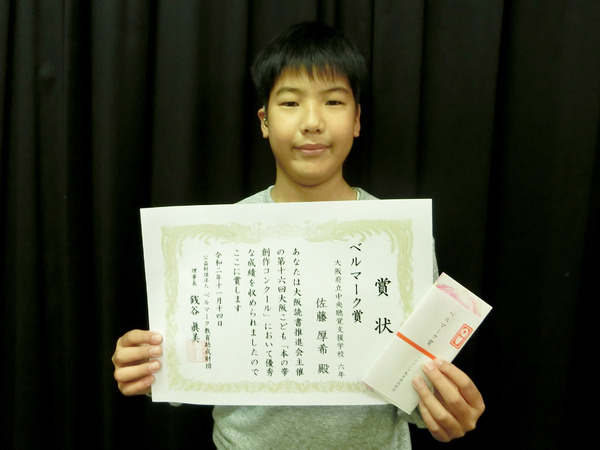 賞状
ベルマーク賞
大阪府立中央聴覚支援学校 六年
佐藤厚希殿
あなたは大阪読書推進会主催
の第十六回大阪こども「本の帯
創作コンクール」において優秀
な成績を収められましたので
ここに賞します
令和二年十一月十四日
公益財団法人 ベルマーク教育助成財団
理事長 銭谷眞美
ベルマーク